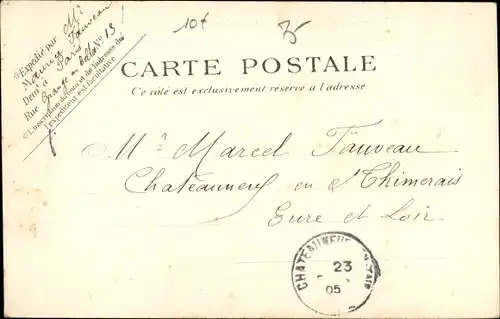 10f
Expédié par Mr
Fauveau
Demt à Paris
Rue Grange aux belles No 13
(L'inscription du nom et de l'adresse de
l'expéditeur est facultative
CARTE POSTALE
Ce côté est exclusivement réservé à l'adresse
Mr Marcel Fauveau
Chateauneuf en Thimerais
Eure et Loir
CHATEAUNEUF-EN-THIM
23
05